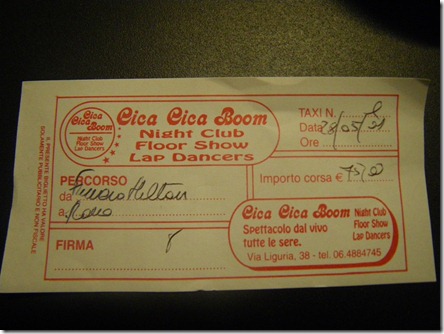 IL PRESENTE BIGLIETTO HA VALORE
SOLAMENTE PUBBLICITARIO E NON FISCALE
Cica Cica Boom
Night Club
Floor Show
Lap Dancers
Cica Cica Boom
Night Club
Floor Show
Lap Dancers
TAXI N.
Data 28/05/
Ore
PERCORSO
da Hilton
a Roma
Importo corsa € 75,00
FIRMA
Cica Cica Boom
Night Club
Floor Show
Lap Dancers
Spettacolo dal vivo
tutte le sere.
Via Liguria, 38 - tel. 06.4884745